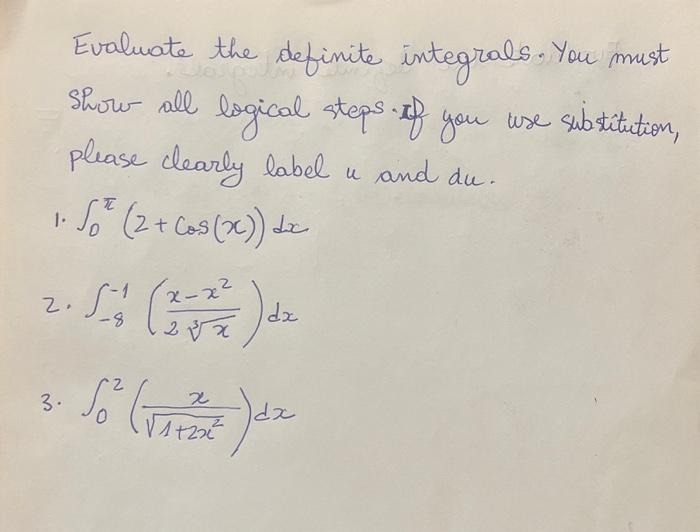 Evaluate the definite integrals. You must
show all logical steps. If you use substitution,
please clearly label u and du.
1. ∫₀^π (2 + cos(x)) dx
2. ∫₋₈^-1 ((x - x²)/(2 ∛x)) dx
3. ∫₀² (x/√(1+2x²)) dx